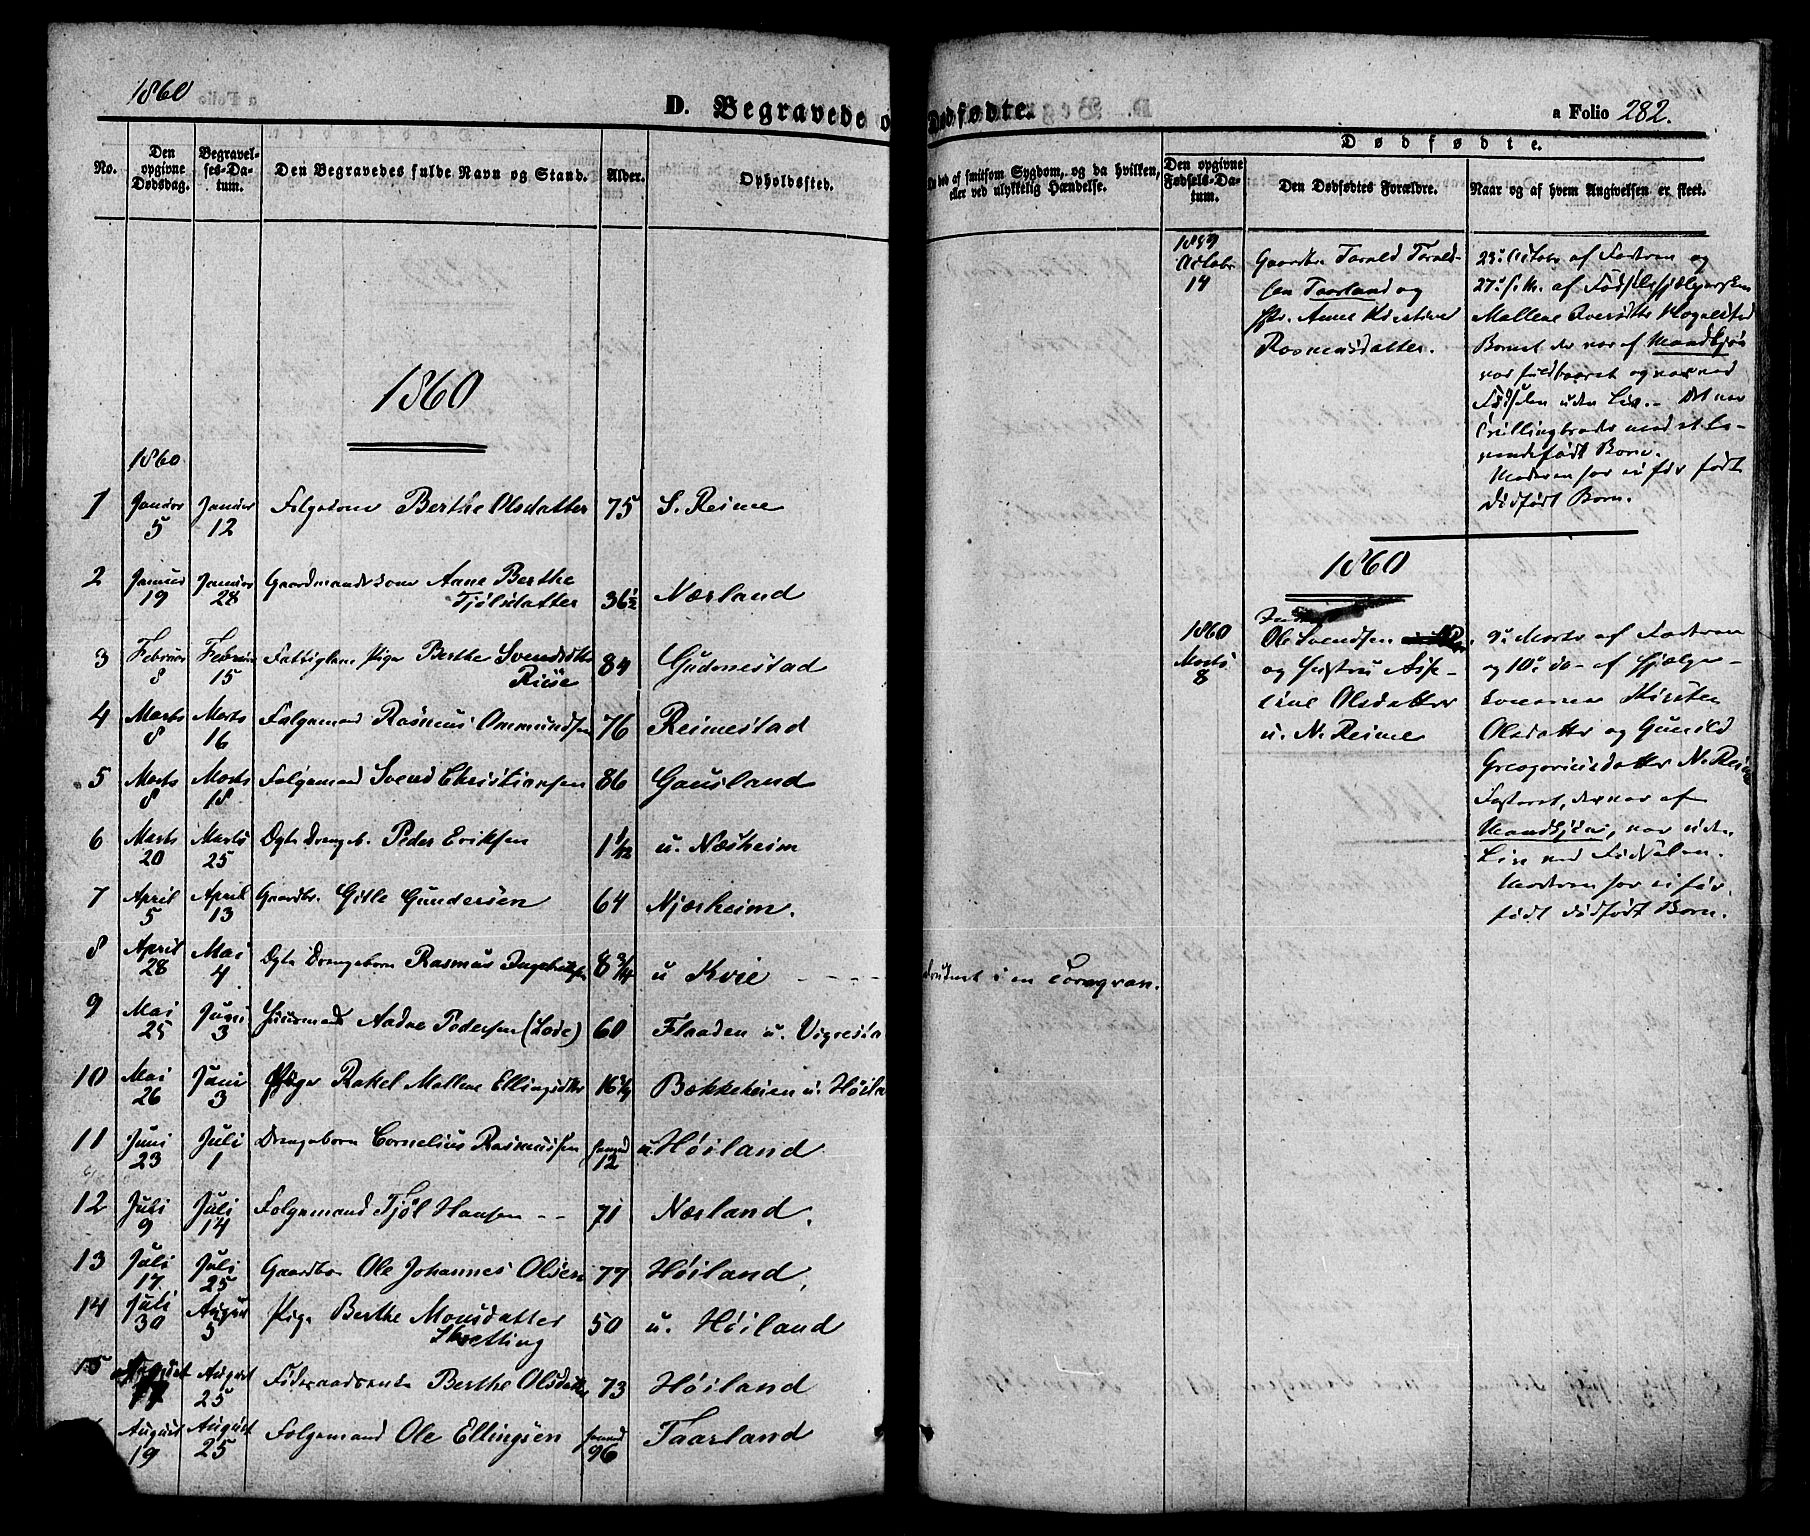 1860
D. Begravede o
Dødfødte.
a Folio 282.
No.
Den opgivne Dødsdag.
Begravelses-Datum.
Den Begravedes fulde Navn og Stand.
Alder.
Opholdssted.
død af smitsom Sygdom, og da hvilken,
eller ved ulykkelig Hændelse.
Dødfødte.
Den opgivne Fødsels-Datum.
Den Dødfødtes Forældre.
Naar og af hvem Angivelsen er skeet.
1860
1860
1 Januar 5 Januar 12 Berthe Olsdatter 75 S. Reime
2 Januar 19 Januar 28 Gaardmandskone Anne Berthe
Tjølsdatter 36½ Nærland
3 Februar 8 Februar 15 Fattiglem Pige Berthe Svendsdtr
84 Gudmestad
4 Marts 8 Marts 16 Folgemand Rasmus Ommundsen 76 Reimestad
5 Marts 8 Marts 18 Folgemand Svend Christiansen 86 Gausland
6 Marts 20 Marts 25 Ægte Drengeb. Peder Eriksen 1 1/12 u. Næsheim
7 April 5 April 13 Gaardbr. Gitle Gundersen 64 Njærheim.
8 April 28 Mai 4 Ægte Drengebarn Rasmus 8 u Kvie
9 Mai 25 Juni 3 Huusmand Aadne Pedersen (Lode) 60 Flaaden u. Vigrestad
10 Mai 26 Juni 3 Pige Rakel Mallene Ellingsdtr 16 Bækkeheien u. Høila
11 Juni 23 Juli 1 Drengebarn Cornelius Rasmussen 12 u Høiland
12 Juli 9 Juli 14 Folgemand Tjøl Hansen -- 71 Nærland.
13 Juli 17 Juli 25 Gaardbr Ole Johannes Olsen 77 Høiland,
14 Juli 30 August 5 Pige Berthe Monsdatter
Skretting 50 u. Høiland
15 August 17 August 25 Berthe Olsdatter 73 Høiland
August 19 August 25 Folgemand Ole Ellingsen 96 Taarland
druknet i en Torvgrav.
1859
Octobr
14
Gaardbr. Tarald Tarald-
sen Taarland og
Hstr. Anne Kirstine
Rasmusdatter.
23. Octobr af Faderen og
27. s. M. af Fødselshjælpersken
Mallene
Barnet der var af Mandkjøn
var fuldbaaret og var ved
Fødselen uden Liv. - Det var
Tvillingbroder med et le-
vendefødt Barn.
Moderen har ei før født
dødfødt Barn.
1860
1860
Marts
8
Ole Svendsen
og Hustru
Olsdatter
u. N. Reime
9. Marts af Faderen
og 10. do - af Hjælpe-
konerne Kirsten
Olsdatter og Gunild
Gregoriusdatter N. Reime
Fosteret, der var af
Mandkjøn, var uden
Liv ved Fødselen.
Moderen har ei før
født dødfødt Barn.